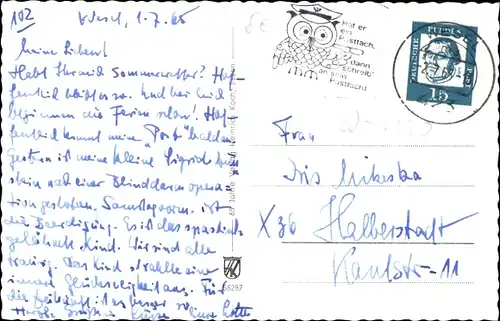 102
Wesel, 1.7.65
Meine Lieben!
Habt Ihr auch Sommerwetter? Hof-
fentlich bleibt es so. Und bei mir
beginnen die Ferien schon! Hof-
fentlich kommt meine "Post" balde an.
Gestern ist meine kleine Sigrid
nach einer Blinddarmopera-
tion gestorben. Samstagvorm. ist
die Beerdigung. Es ist das spastisch
gelähmte Kind. Wir sind alle
traurig. Das Kind strahlte eine
innere Glückseligkeit aus. Für
die Zukunft ist es besser so
Herzl. Grüße Eure Lotte
Hat er
ein
Postfach,
dann
schreib'
an sein
Postfach!
DEUTSCHE BUNDESPOST
15
Frau
Iris Mikeska
X 36 Halberstadt
Kantstr. 11
Heinrich Koch
58287